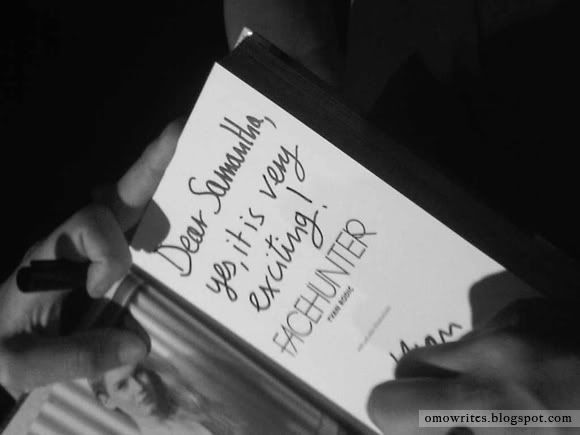 Dear Samantha,
yes, it is very
exciting!
FACEHUNTER
YVAN RODIC
omowrites.blogspot.com